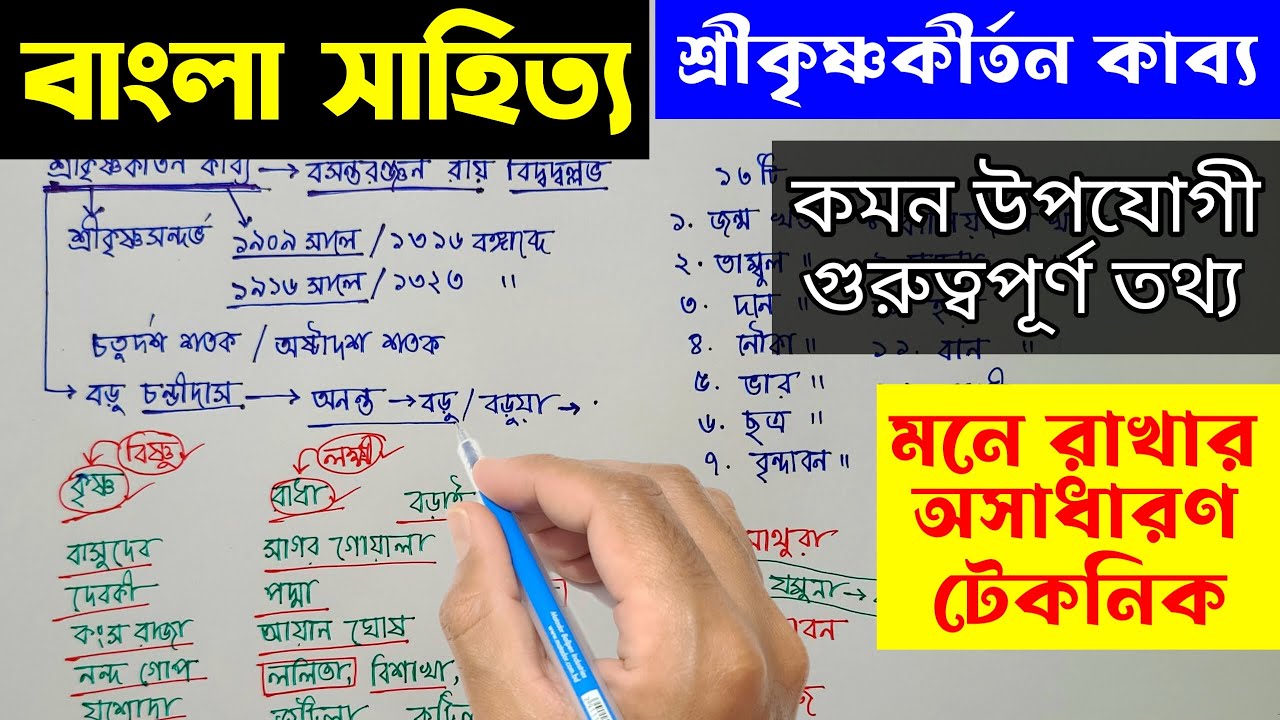 বাংলা সাহিত্য
শ্রীকৃষ্ণকীর্তন কাব্য
কমন উপযোগী
গুরুত্বপূর্ণ তথ্য
মনে রাখার
অসাধারণ
টেকনিক
শ্রীকৃষ্ণকীর্তন কাব্য → বসন্তরঞ্জন রায় বিদ্বদ্বল্লভ
শ্রীকৃষ্ণসন্দর্ভ ১৯০৯ সালে / ১৩১৬ বঙ্গাব্দে
১৯১৬ সালে / ১৩২৩ "
চতুর্দশ শতক / অষ্টাদশ শতক
→ বড়ু চন্ডীদাস → অনন্ত → বড়ু / বড়ুয়া →
বিষ্ণু লক্ষ্মী
কৃষ্ণ রাধা বড়াই
বাসুদেব সাগর গোয়ালা
দেবকী পদ্মা
কংস রাজা আয়ান ঘোষ
নন্দ গোপ ললিতা, বিশাখা,
যশোদা জটিলা
১৩ টি
১. জন্ম
২. তাম্বুল "
৩. দান "
৪. নৌকা "
৫. ভার "
৬. ছত্র "
৭. বৃন্দাবন "
১১. বান "
যমুনা →